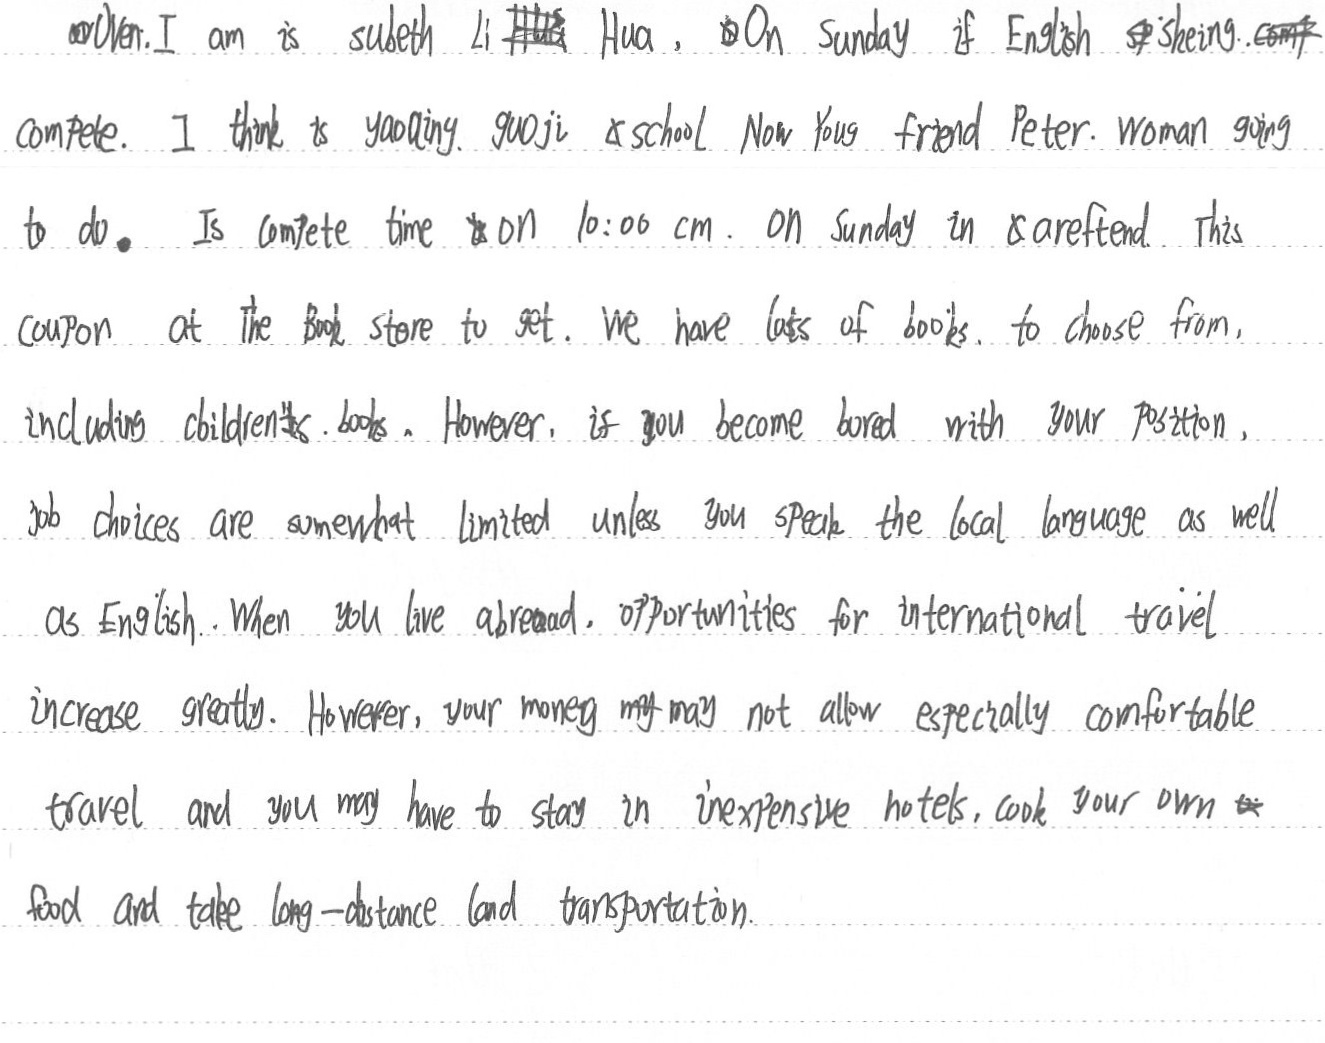 Oven. I am is subeth Li Hua, On Sunday if English sheing.
compete. I think is yaoqing. guoji school Now Youg friend Peter. Woman going
to do. Is compete time on 10:00 cm. on Sunday in areftend. This
coupon at The Book store to get. We have lots of books. to choose from,
including children's. books. However, if you become bored with your Position,
Job choices are somewhat limited unless you speak the local language as well
as English. When you live abroad. opportunities for international travel
increase greatly. However, your money may not allow especially comfortable
travel and you may have to stay in inexpensive hotels, cook your own
food and take long-distance land transportation.